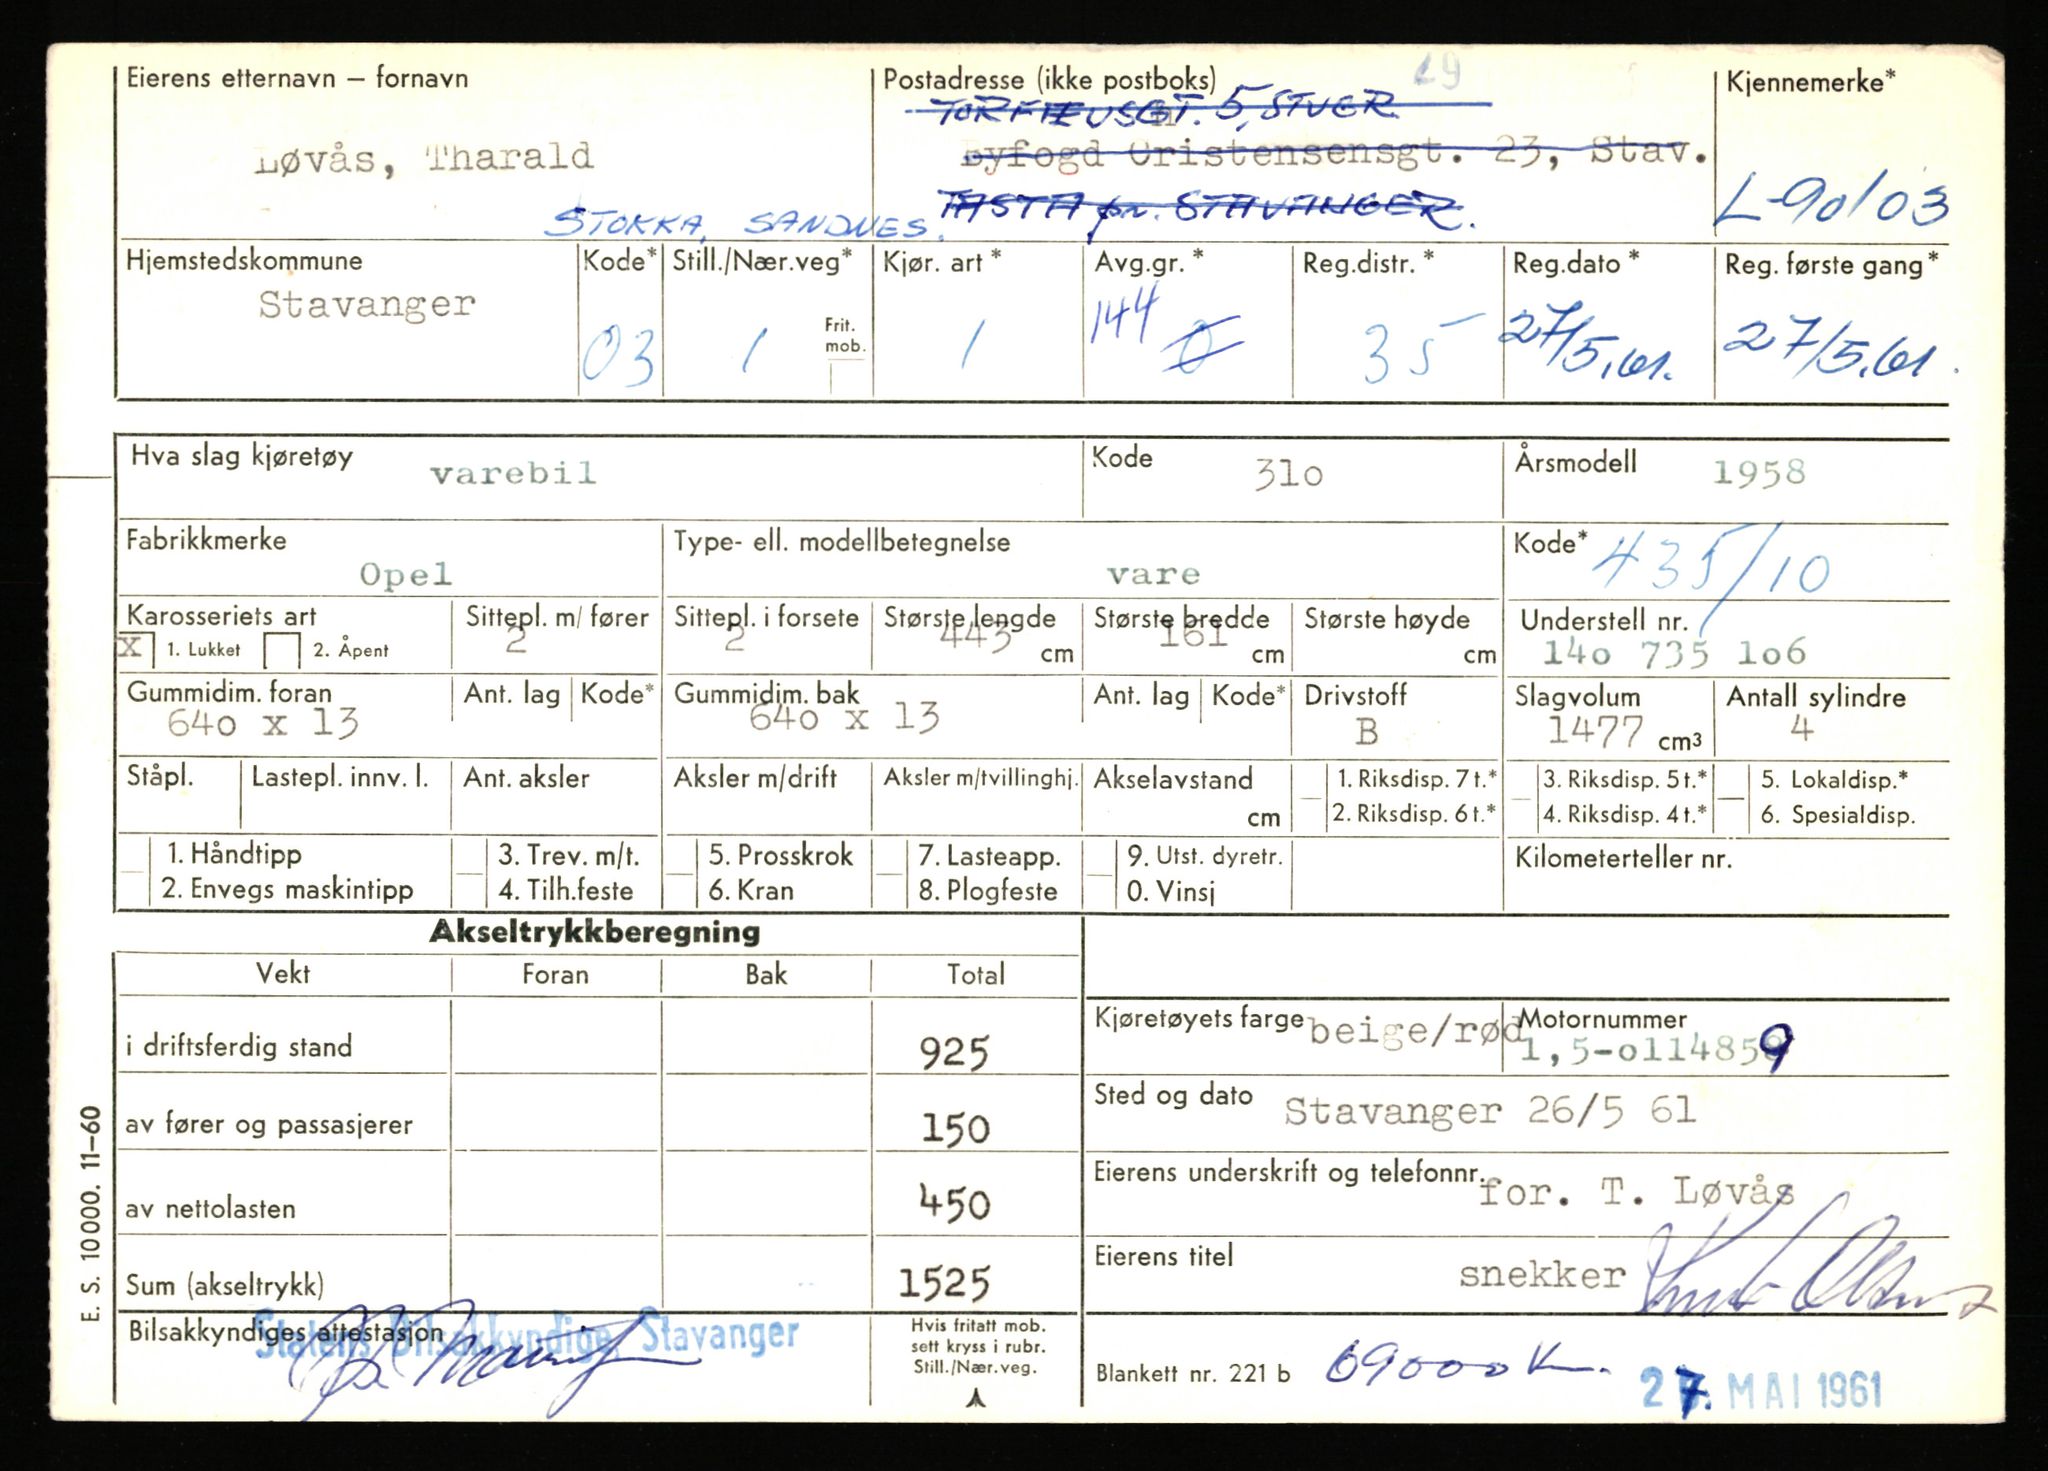 Eierens etternavn – fornavn
Løvås, Tharald
Postadresse (ikke postboks) 29
5, STVGR.
Byfogd Cristensensgt. 23, Stav.
TASTA pr. STAVANGER.
STOKKA, SANDNES.
Kjennemerke*
L-90103
Hjemstedskommune
Stavanger
Kode*
03
Still./Nær.veg*
1
Frit.
mob.
Kjør. art *
1
Avg.gr. *
144 0
Reg.distr. *
35
Reg.dato *
27/5.61.
Reg. første gang*
27/5.61.
Hva slag kjøretøy
varebil
Kode
31o
Årsmodell
1958
Fabrikkmerke
Opel
Type- ell. modellbetegnelse
vare
Kode*
435/10
Karosseriets art
X 1. Lukket 2. Åpent
Sittepl. m/ fører
2
Sittepl. i forsete
2
Største lengde
443 cm
Største bredde
161 cm
Største høyde
cm
Understell nr.
14o 735 1o6
Gummidim. foran
64o x 13
Ant. lag Kode*
Gummidim. bak
64o x 13
Ant. lag Kode*
Drivstoff
B
Slagvolum
1477 cm³
Antall sylindre
4
Ståpl.
Lastepl. innv. l.
Ant. aksler
Aksler m/drift
Aksler m/tvillinghj.
Akselavstand
cm
1. Riksdisp. 7 t.*
2. Riksdisp. 6 t.*
3. Riksdisp. 5 t.*
4. Riksdisp. 4 t.*
5. Lokaldisp.*
6. Spesialdisp.
1. Håndtipp
2. Envegs maskintipp
3. Trev. m/t.
4. Tilh.feste
5. Prosskrok
6. Kran
7. Lasteapp.
8. Plogfeste
9. Utst. dyretr.
0. Vinsj
Kilometerteller nr.
Akseltrykkberegning
Vekt Foran Bak Total
i driftsferdig stand 925
av fører og passasjerer 150
av nettolasten 450
Sum (akseltrykk) 1525
Kjøretøyets farge beige/rød
Motornummer
1,5-o114859
Sted og dato Stavanger 26/5 61
Eierens underskrift og telefonnr. for. T. Løvås
Eierens titel snekker
Bilsakkyndiges attestasjon
Statens Bilsakkyndige, Stavanger
Hvis fritatt mob.
sett kryss i rubr.
Still./Nær.veg.
Blankett nr. 221 b
69000 km.
27. MAI 1961
E. S. 10 000. 11–60